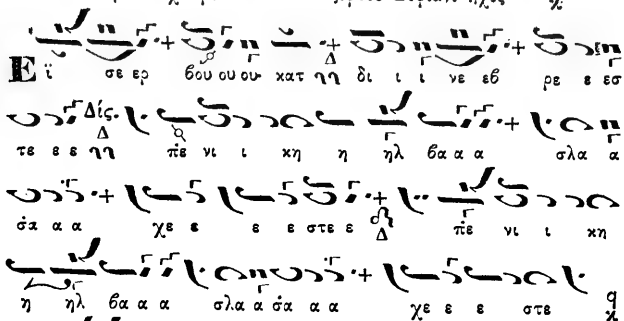 Εϊ σε ερ βου ου ου κατ ηη Δ δι ι ι νε εβ ρε ε εσ
Δίς.
τε ε ε ηη Δ πε νι ι κη η ηλ βα α α σλα α
σα α α χε ε ε ε στε ε Δ πε νι ι κη
η ηλ βα α α σλα α σα α α χε ε ε στε